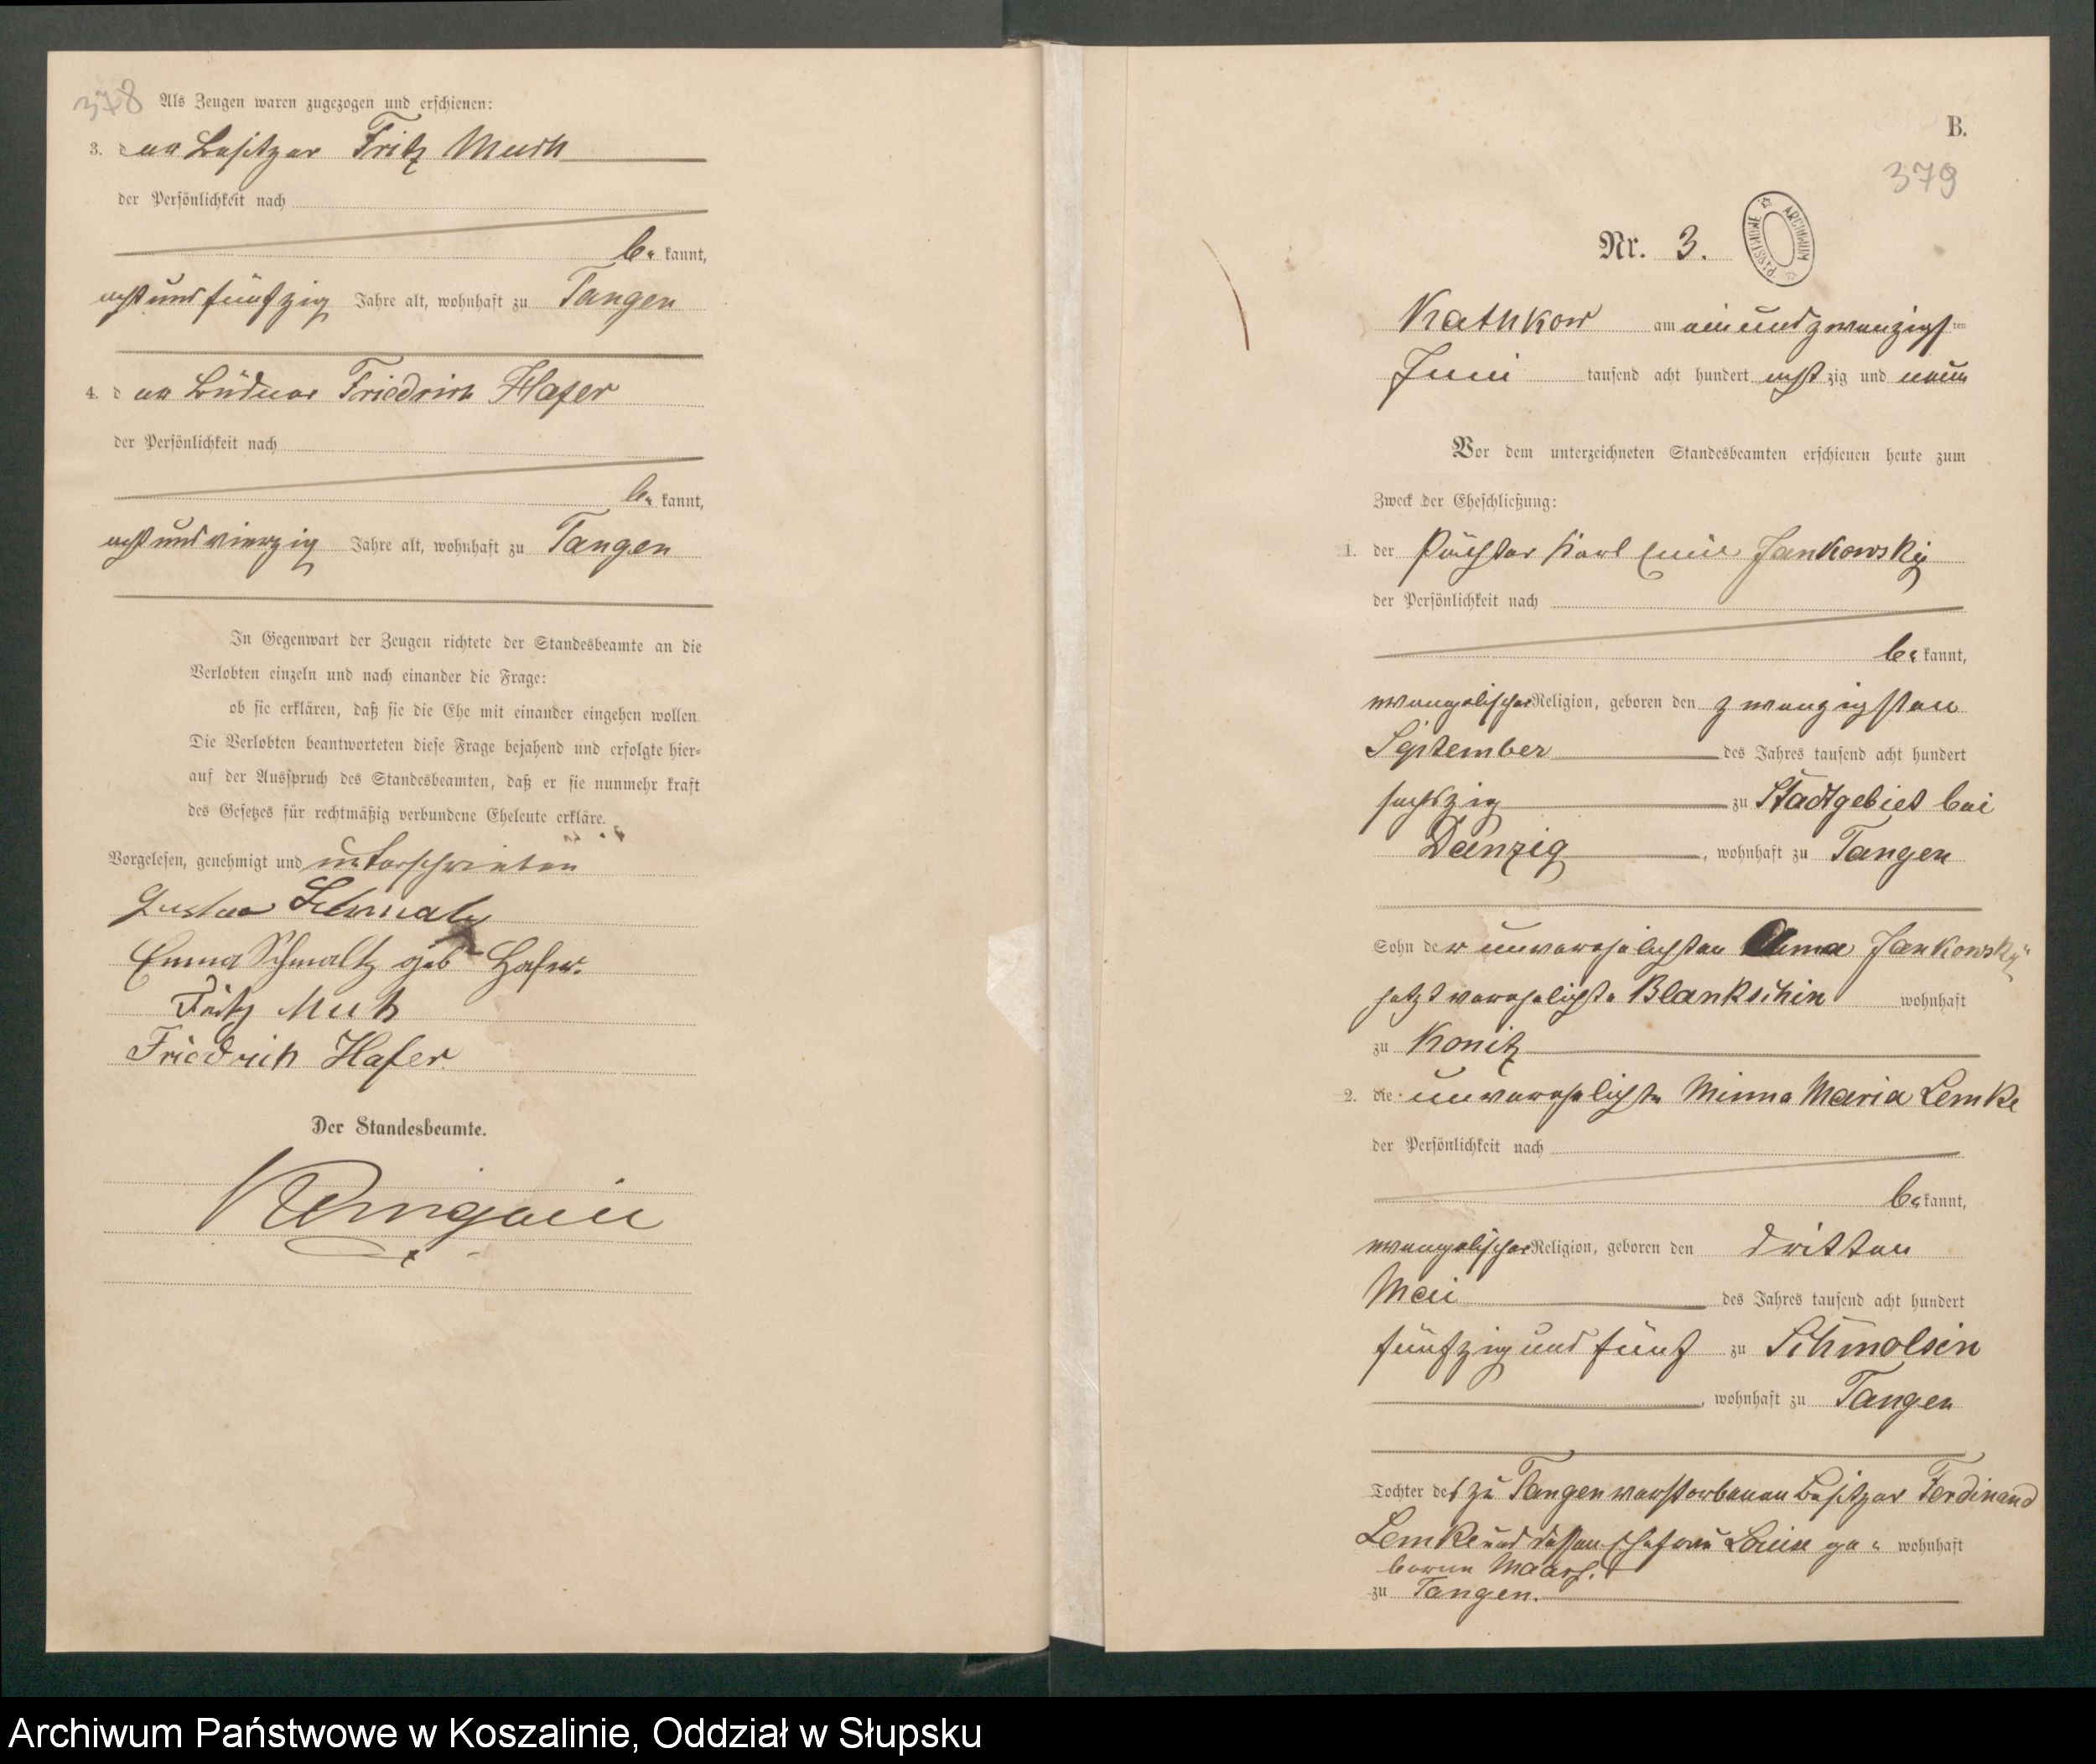 378
Als Zeugen waren zugezogen und erschienen:
3. der Besitzer Fritz Muth
der Persönlichkeit nach
be kannt,
acht und fünfzig Jahre alt, wohnhaft zu Tangen
4. der Büdner Friedrich Hafer
der Persönlichkeit nach
be kannt,
acht und vierzig Jahre alt, wohnhaft zu Tangen
In Gegenwart der Zeugen richtete der Standesbeamte an die
Verlobten einzeln und nach einander die Frage:
ob sie erklären, daß sie die Ehe mit einander eingehen wollen.
Die Verlobten beantworteten diese Frage bejahend und erfolgte hier-
auf der Ausspruch des Standesbeamten, daß er sie nunmehr kraft
des Gesetzes für rechtmäßig verbundene Eheleute erkläre.
Vorgelesen, genehmigt und unterschrieben
Gustav Schmalz
Emma Schmaltz geb. Hafer.
Fritz Muth
Friedrich Hafer.
Der Standesbeamte.
B.
379
Nr. 3.
ARCHIWUM PAŃSTWOWE
Kathkow am ein und zwanzigsten
Juni tausend acht hundert acht zig und neun
Vor dem unterzeichneten Standesbeamten erschienen heute zum
Zweck der Eheschließung:
1. der Pächter Karl Emil Jankowsky
der Persönlichkeit nach
be kannt,
evangelischer Religion, geboren den zwanzigsten
September des Jahres tausend acht hundert
sechszig zu Stadtgebiet bei
Danzig, wohnhaft zu Tangen
Sohn der unverehelichten Jankowsky
jetzt verehelichte Blankschin wohnhaft
zu Konitz
2. die unverehelichte Minna Maria Lemke
der Persönlichkeit nach
be kannt,
evangelischer Religion, geboren den dritten
Mai des Jahres tausend acht hundert
fünfzig und fünf zu Schmolsin
, wohnhaft zu Tangen
Tochter des zu Tangen verstorbenen Besitzer Ferdinand
Lemke und dessen Ehefrau Louise ge- wohnhaft
borene
zu Tangen.
Archiwum Państwowe w Koszalinie, Oddział w Słupsku